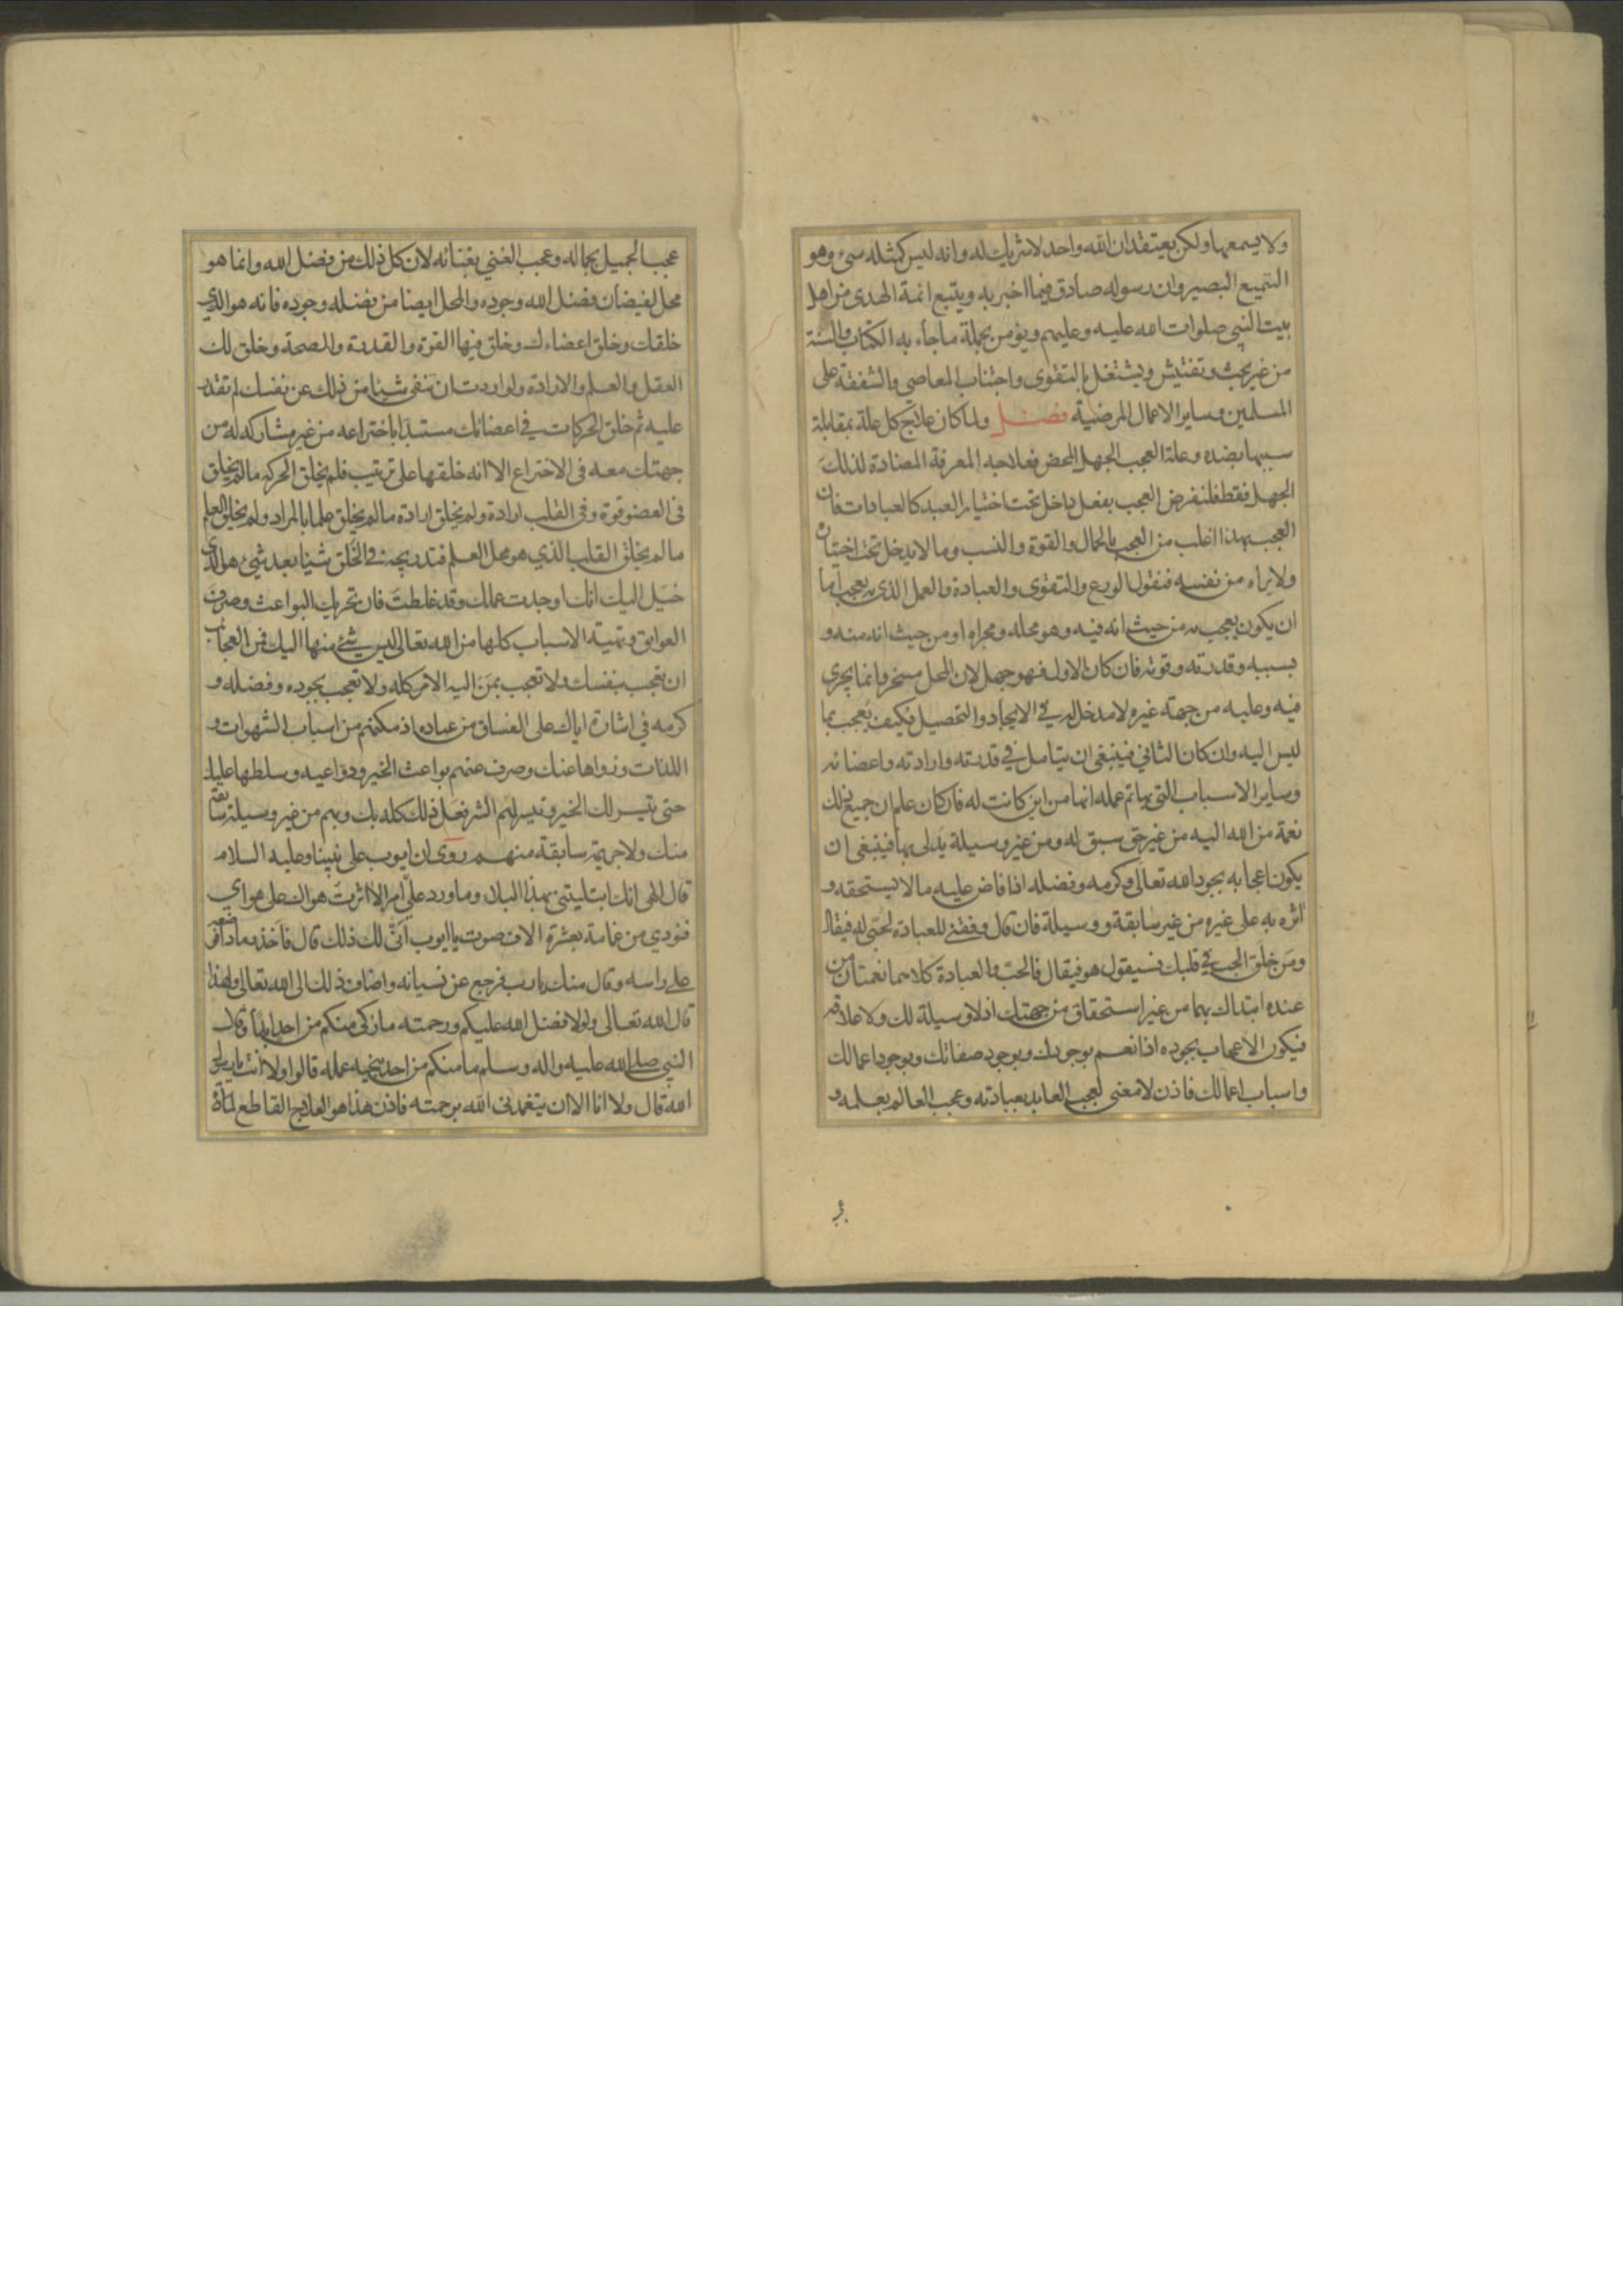 ولا يسمعها ولكن يعتقد ان الله واحد لا شريك له وانه ليس كمثله شيء وهو
السميع البصير وان رسوله صادق فيما اخبر به ويتبع ائمة الهدى من اهل
بيت النبي صلوات الله عليه وعليهم ويؤمن بجملة ما جاء به الكتاب والسنة
من غير بحث وتفتيش ويشتغل بالتقوى واجتناب المعاصي والشفقة على
المسلمين وساير الاعمال المرضية فصل ولما كان علاج كل علة بمقابلة
سببها بضده وعلة العجب الجهل المحض فعلاجه المعرفة المضادة لذلك
الجهل فقط فلنفرض العجب بفعل داخل تحت اختيار العبد كالعبادات فان
العجب بهذا اغلب من العجب بالجمال والقوة والنسب وما لا يدخل تحت اختياره
ولا يراه من نفسه فنقول الورع والتقوى والعبادة والعمل الذي به يعجب اما
ان يكون يعجب به من حيث انه فيه وهو محله ومجراه او من حيث انه منه و
بسببه وقدرته وقوته فان كان الاول فهو جهل لان المحل مسخر وانما يجري
فيه وعليه من جهة غيره لا مدخل له في الايجاد والتحصيل فكيف يعجب بما
ليس اليه وان كان الثاني فينبغي ان يتامل في قدرته وارادته واعضائه
وساير الاسباب التي بها تم عمله انها من اين كانت له فان كان علم ان جميع ذلك
نعمة من الله اليه من غير حق سبق له ومن غير وسيلة يدلى بها فينبغي ان
يكون اعجابه بجود الله تعالى وكرمه وفضله اذا فاض عليه ما لا يستحقه و
اثره به على غيره من غير سابقة ووسيلة فان قال وفقني للعبادة لحبّي له فيقال
ومن خلق الحب في قلبك فسيقول هو فيقال فالحب والعبادة كلاهما نعمتان من
عنده ابتداك بهما من غير استحقاق من جهتك اذ لا وسيلة لك ولا علاقة
فيكون الاعجاب بجوده اذا نعم بوجودك وبوجود صفاتك وبوجود اعمالك
واسباب اعمالك فاذن لا معنى لعجب العابد بعبادته وعجب العالم بعلمه و
عجب الجميل بجماله وعجب الغني بغنائه لان كل ذلك من فضل الله وانما هو
محل لفيضان فضل الله وجوده والمحل ايضا من فضله وجوده فانه هو الذي
خلقك وخلق اعضاءك وخلق فيها القوة والقدرة والصحة وخلق لك
العقل والعلم والارادة ولو اردت ان تنفي شيئا من ذلك عن نفسك لم تقدر
عليه ثم خلق الحركات في اعضائك مستبدا باختراعه من غير مشاركه له من
جهتك معه في الاختراع الا انه خلقها على ترتيب فلم يخلق الحركه ما لم يخلق
في العضو قوة وفي القلب ارادة ولم يخلق ارادة ما لم يخلق علما بالمراد ولم يخلق العلم
ما لم يخلق القلب الذي هو محل العلم فتدريجه في الخلق شيئا بعد شيئ هو الذي
خيّل اليك انك اوجدت عملك وقد غلطت فان تحريك البواعث وصرف
العوايق وتهيئة الاسباب كلها من الله تعالى ليس شئ منها اليك فمن العجائب
ان تعجب بنفسك ولا تعجب بمن اليه الامر كله ولا تعجب بجوده وفضله و
كرمه في ايثاره اياك على الفساق من عباده اذ مكنهم من اسباب الشهوات و
اللذات وزواها عنك وصرف عنهم بواعث الخير ودواعيه وسلطها عليك
حتى تيسر لك الخير وتيسر لهم الشر فعل ذلك كله بك وبهم من غير وسيلة سابقة
منك ولا جريمة سابقة منهم روى ان ايوب على نبينا وعليه السلام
قال الهى انك ابتليتني بهذا البلاء وما ورد عليّ امر الا اثرت هواك على هواي
فنودي من غمامة بعشرة الاف صوت يا ايوب انّى لك ذلك قال فاخذ رمادا فوضعه
على راسه وقال منك يا رب فرجع عن نسيانه واضاف ذلك الى الله تعالى ولهذا
قال الله تعالى ولولا فضل الله عليكم ورحمته ما زكى منكم من احد ابدا وقال
النبي صلى الله عليه واله وسلم ما منكم من احد ينجيه عمله قالوا ولا انت يا رسول
الله قال ولا انا الا ان يتغمدني الله برحمته فاذن هذا هو العلاج القاطع لمادة